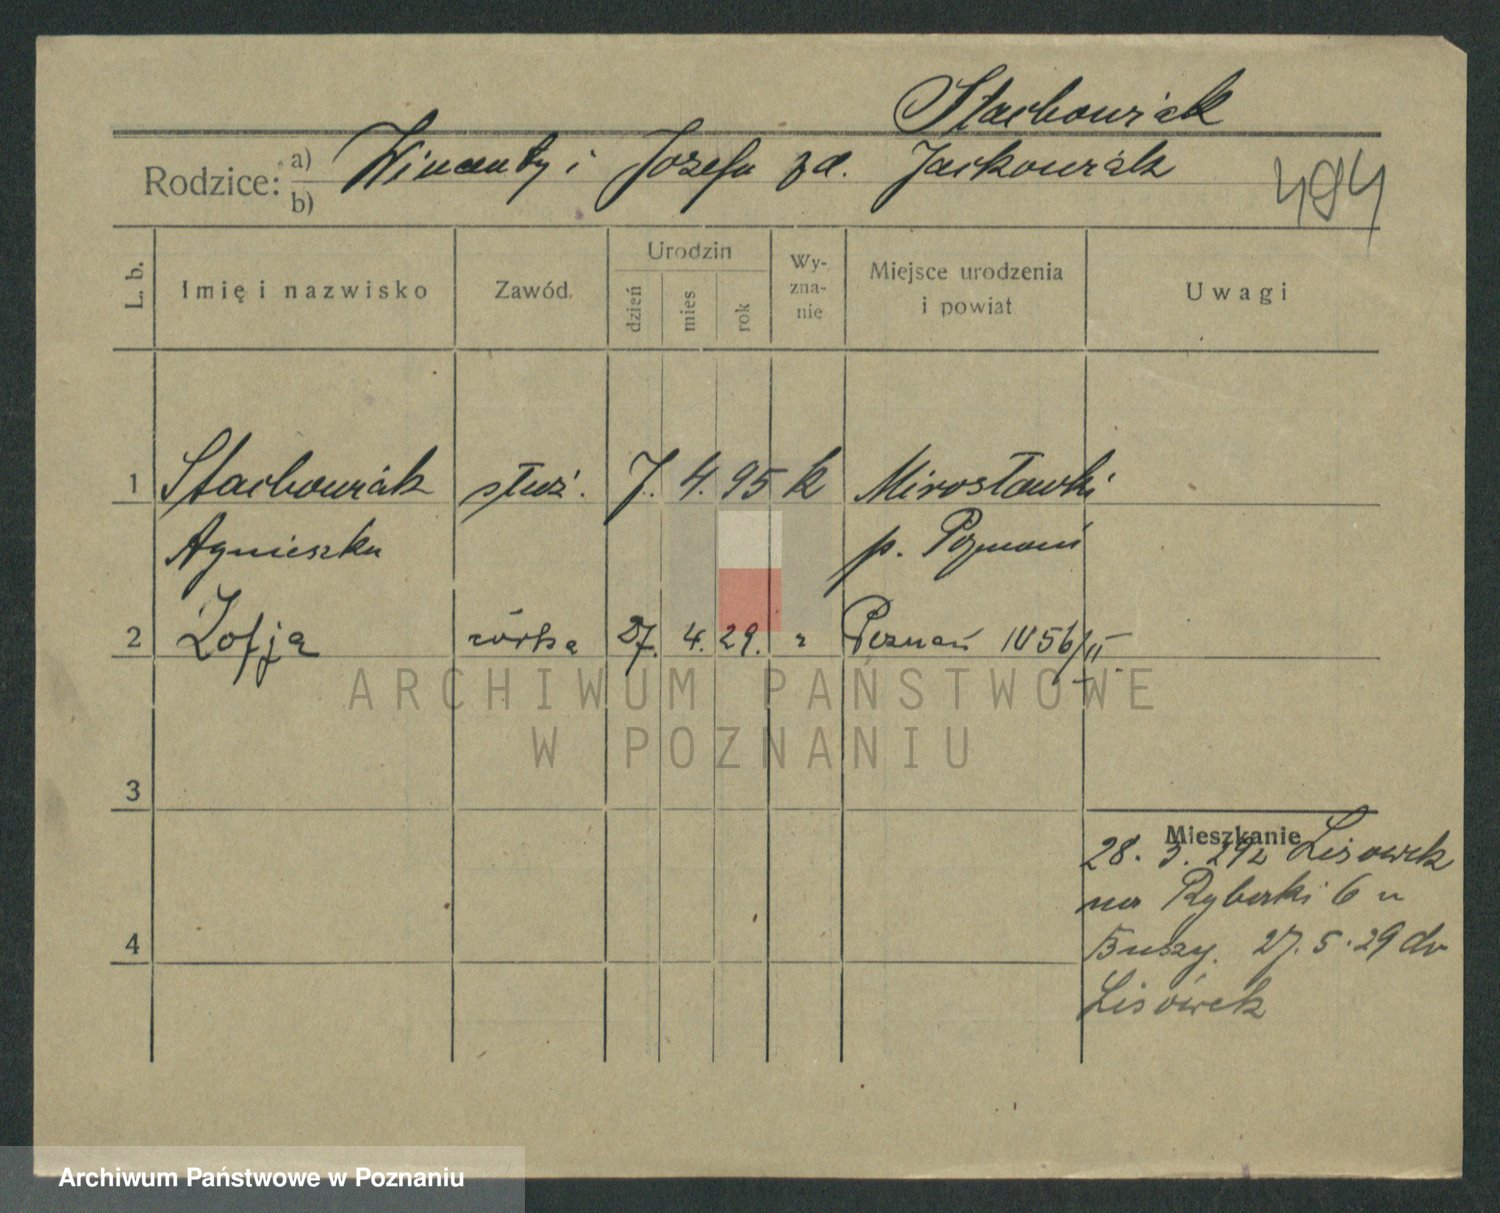 Stachowiak
Rodzice: a) Wincenty i Józefa zd. Jackowiak
b)
494
L. b.
Imię i nazwisko
Zawód.
Urodzin
dzień
mies
rok
Wy-
zna-
nie
Miejsce urodzenia
i powiat
Uwagi
1 Stachowiak służ. 7. 4. 95 k Mirosławki
Agnieszka p. Poznań
2 Zofja córka 27. 4. 29. Poznań IV 56/II
3
4
Mieszkanie
28. 3. 29 z Lisówek
na Rybaki 6 u
27. 5. 29 do
Lisówek
ARCHIWUM PAŃSTWOWE
W POZNANIU
Archiwum Państwowe w Poznaniu